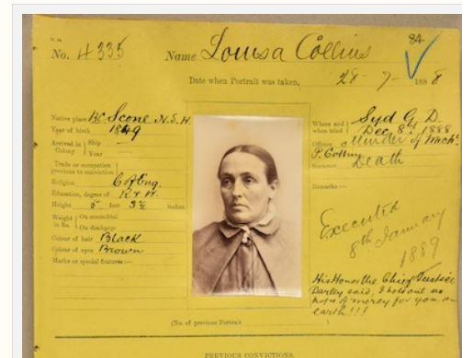 84
No. 4335 Name Louisa Collins
Date when Portrait was taken, 28-7-1888
Native place Scone N.S.W
Year of birth 1849
Arrived in Colony } Ship —
Year —
Trade or occupation previous to conviction }
Religion C of Eng.
Education, degree of R & W.
Height 5 feet inches
Weight in lbs. } On committal
On discharge
Colour of hair Black
Colour of eyes Brown
Marks or special features:—
Where and when tried } Syd G. D.
Dec. 8th 1888
Offence Murder of Mich.
P. Collins
Sentence Death
Remarks:—
Executed
8th January
1889
His Honor the Chief Justice
Darley said, I hold out no
hope of mercy for you on
earth!!!
(No. of previous Portrait )
PREVIOUS CONVICTIONS.